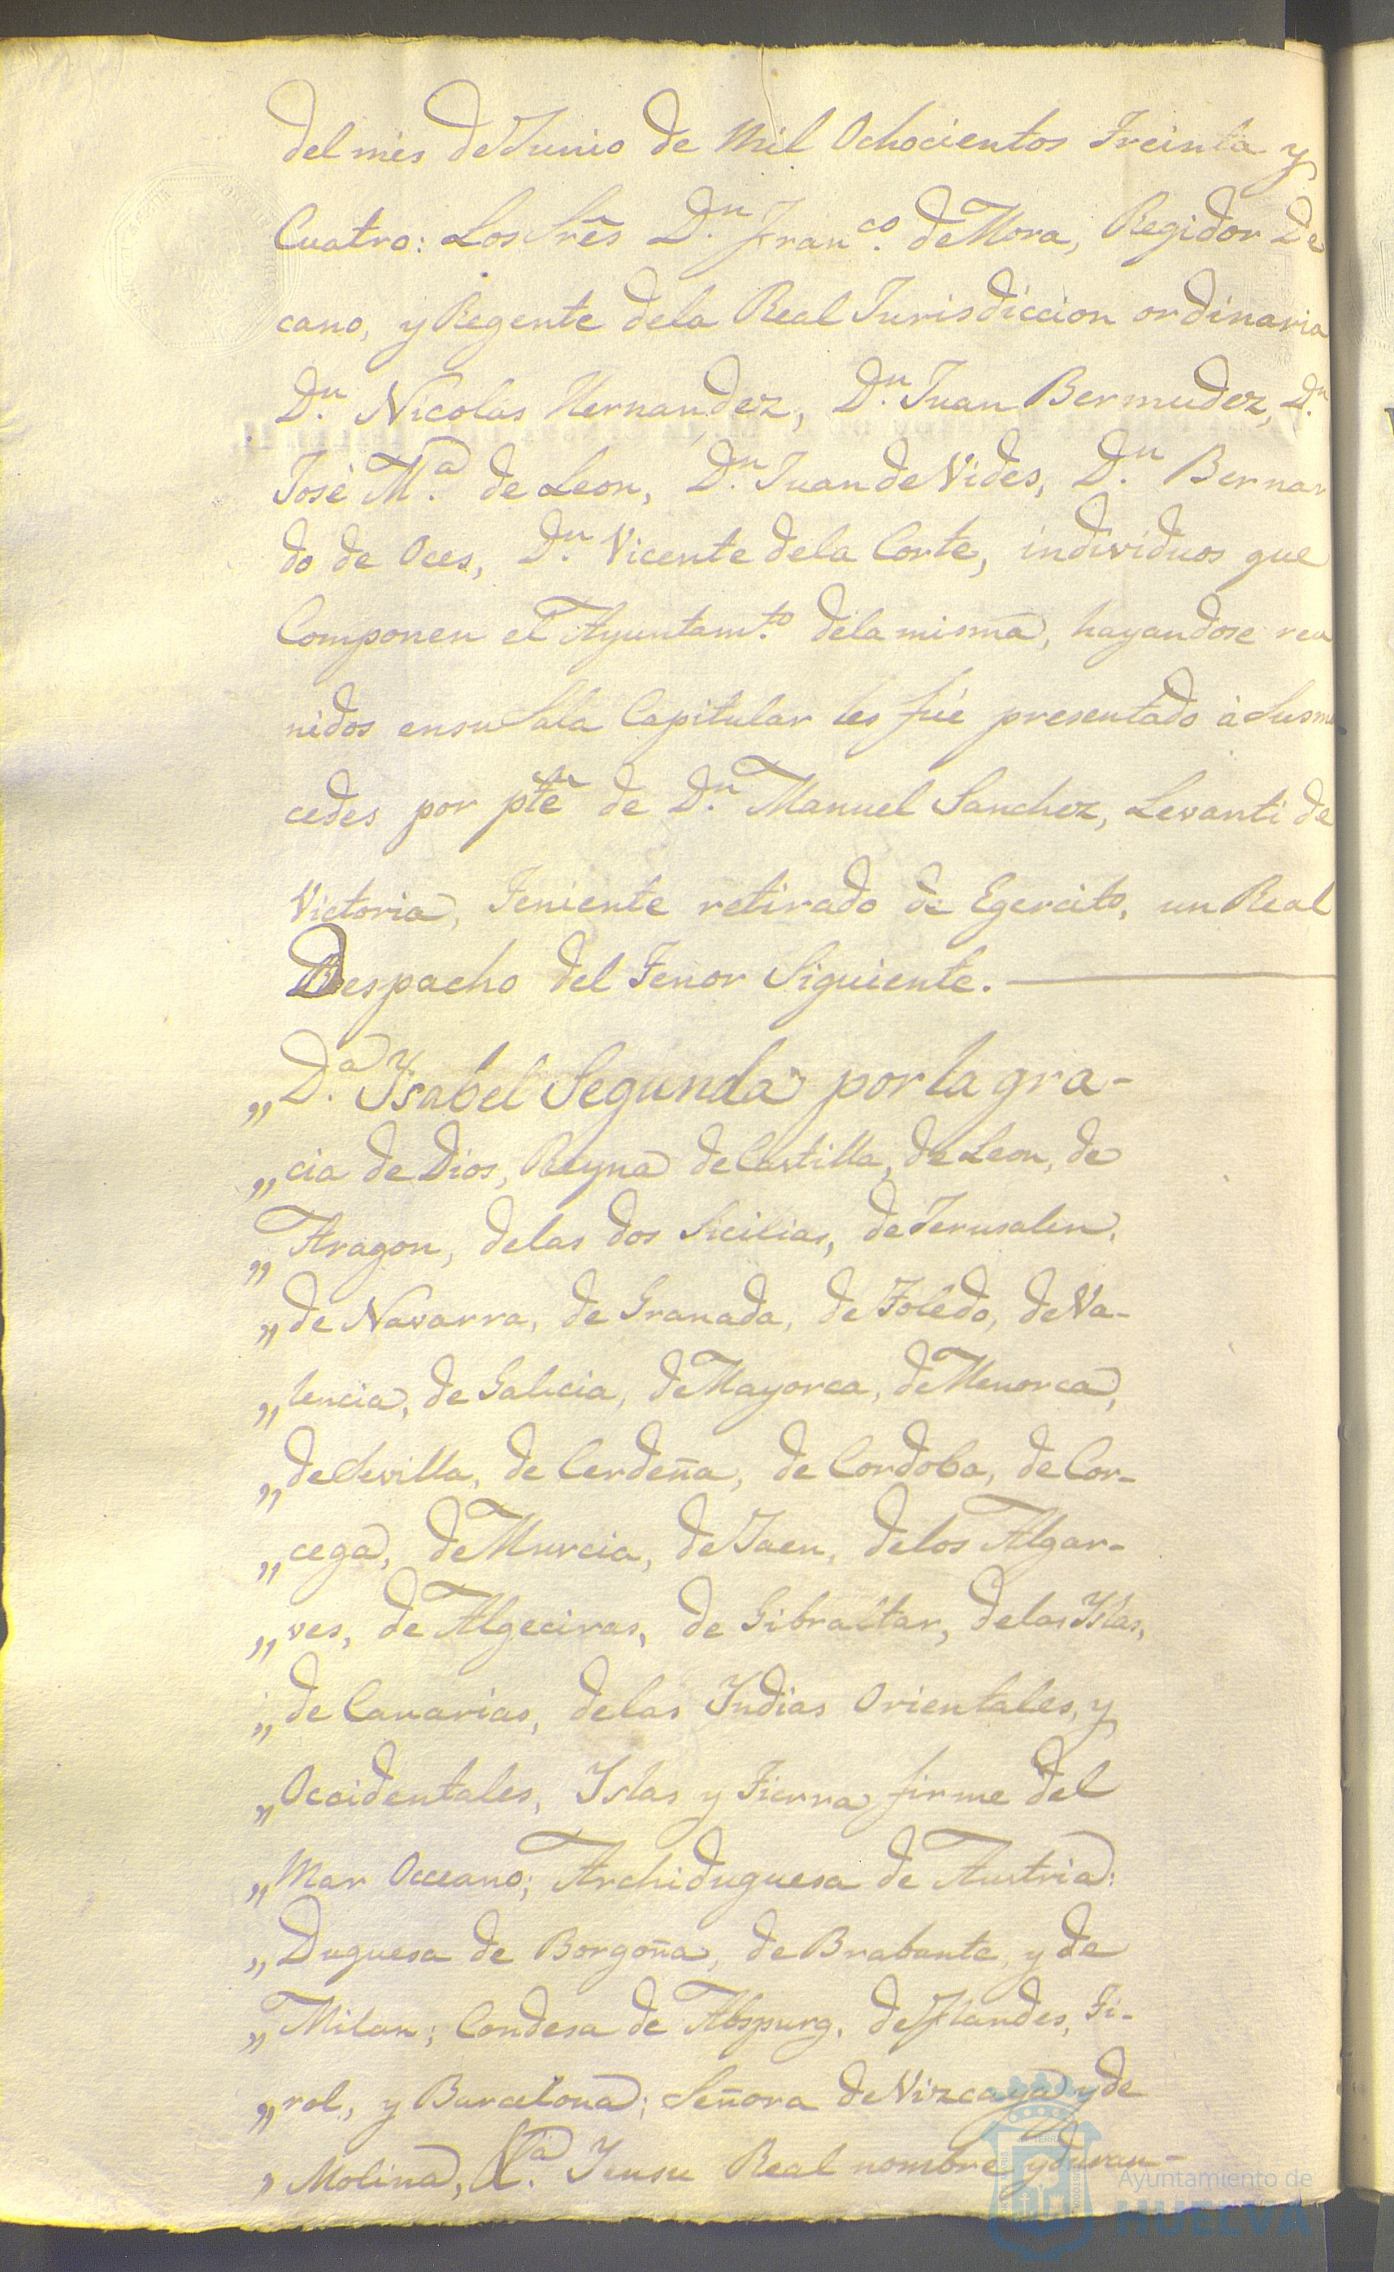 del mes de Junio de Mil Ochocientos Treinta y
Cuatro: Los Sres Dn. Franco. de Mora, Regidor De
cano, y Regente dela Real Jurisdiccion ordinaria
Dn. Nicolas Hernandez, Dn. Juan Bermudez, Dn.
José Ma. de Leon, Dn. Juan de Vides, Dn. Bernar
do de Oces, Dn. Vicente dela Corte, individuos que
Componen el Ayuntamto. dela misma, hayandose reu
nidos ensu Sala Capitular les fué presentado á Sus mr
cedes por pte de Dn. Manuel Sanchez, Levanti de
Victoria, Teniente retirado de Egercito, un Real
Despacho del Tenor Siguiente.
„ Da. Ysabel Segunda por la gra-
„ cia de Dios, Reyna de Castilla, de Leon, de
„ Aragon, delas dos Sicilias, de Jerusalen,
„ de Navarra, de Granada, de Toledo, de Va-
„ lencia, de Galicia, de Mayorca, de Menorca,
„ de Sevilla, de Cerdeña, de Cordoba, de Cor-
„ cega, de Murcia, de Jaen, delos Algar-
„ ves, de Algeciras, de Gibraltar, delas Yslas,
„ de Canarias, delas Yndias Orientales, y
„ Occidentales, Yslas y Tierra firme del
„ Mar Occeano; Archiduquesa de Austria:
„ Duquesa de Borgoña, de Brabante, y de
„ Milan; Condesa de Abspurg, de Flandes, Ti-
„ rol, y Barcelona; Señora de Vizcaya y de
„ Molina, &a. Y ensu Real nombre y duran-
Ayuntamiento de
HUELVA